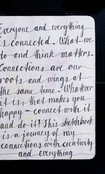 Everyone and everything
is connected. What we
do and think matters.
Connections are our
roots and wings at
the same time. Whatever
it is, that makes you
happy - connect with it
and do it! This sketchbook
is a journey of my
connections with creativity
and everything.